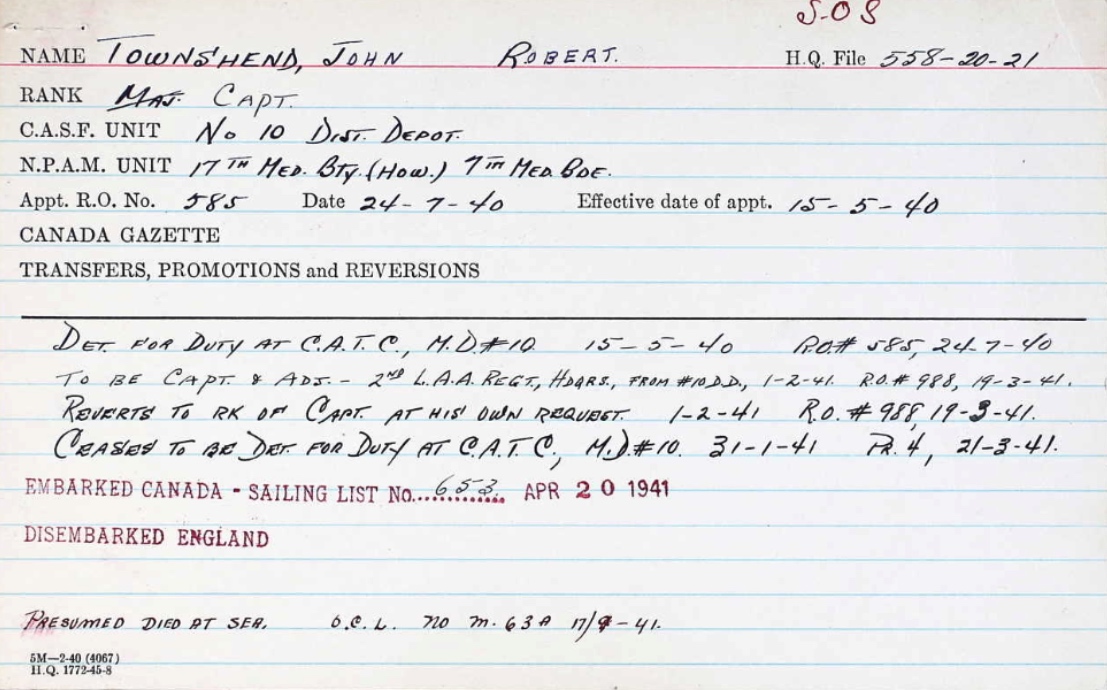 S.O.S
NAME TOWNSHEND, JOHN ROBERT. H.Q. File 558-20-21
RANK MAJ. CAPT.
C.A.S.F. UNIT No 10 DIST. DEPOT.
N.P.A.M. UNIT 17TH MED. BTY. (HOW.) 7TH MED. BDE.
Appt. R.O. No. 585 Date 24-7-40 Effective date of appt. 15-5-40
CANADA GAZETTE
TRANSFERS, PROMOTIONS and REVERSIONS
DET. FOR DUTY AT C.A.T.C., M.D.#10. 15-5-40 R.O.# 585, 24-7-40
TO BE CAPT. & ADJ. - 2ND L.A.A. REGT., HDQRS., FROM #10 D.D., 1-2-41. R.O.# 988, 19-3-41.
REVERTS TO RK OF CAPT. AT HIS OWN REQUEST. 1-2-41 R.O. #988, 19-3-41.
CEASES TO BE DET. FOR DUTY AT C.A.T.C., M.D.#10. 31-1-41 Pt. 4, 21-3-41.
EMBARKED CANADA - SAILING LIST No....653.... APR 20 1941
DISEMBARKED ENGLAND
PRESUMED DIED AT SEA. O.C.L. NO M. 63A 17/9-41.
5M—2-40 (4067)
H.Q. 1772-45-8